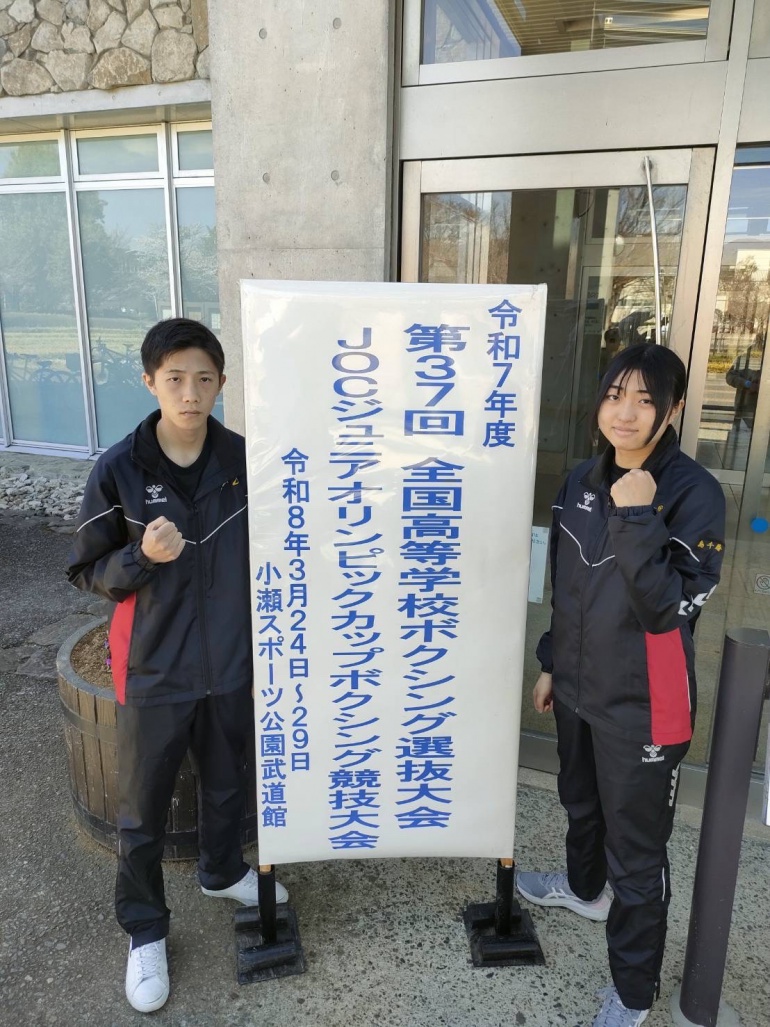 令和7年度
第37回 全国高等学校ボクシング選抜大会
JOCジュニアオリンピックカップボクシング競技大会
令和8年3月24日～29日
小瀬スポーツ公園武道館
hummel
hummel
hummel